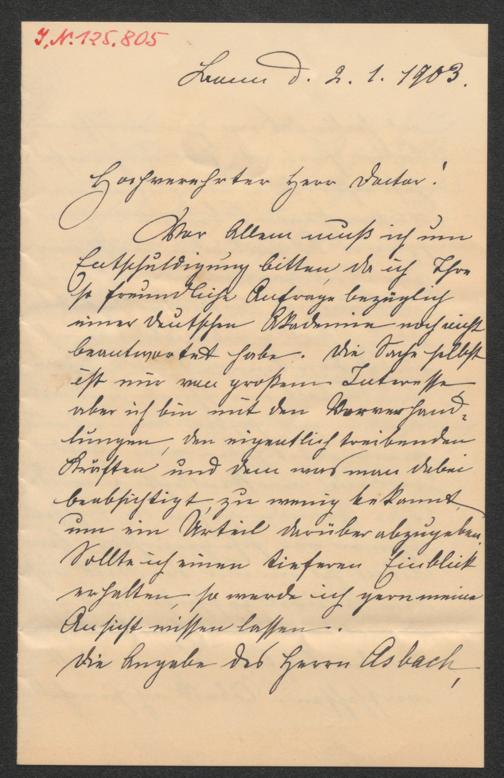 J.N. 125.805
Bonn d. 2. 1. 1903.
Hochverehrter Herr Doctor!
Vor Allem muß ich um
Entschuldigung bitten, da ich Ihre
so freundliche Anfrage bezüglich
einer deutschen Akademie noch nicht
beantwortet habe. Die Sache selbst
ist mir von großem Interesse
aber ich bin mit den Vorverhand-
lungen, den eigentlich treibenden
Kräften und dem was man dabei
beabsichtigt, zu wenig bekannt,
um ein Urteil darüber abzugeben.
Sollte ich einen tieferen Einblick
erhalten, so werde ich gern meine
Ansicht wissen lassen.
Die Angabe des Herrn Asbach,